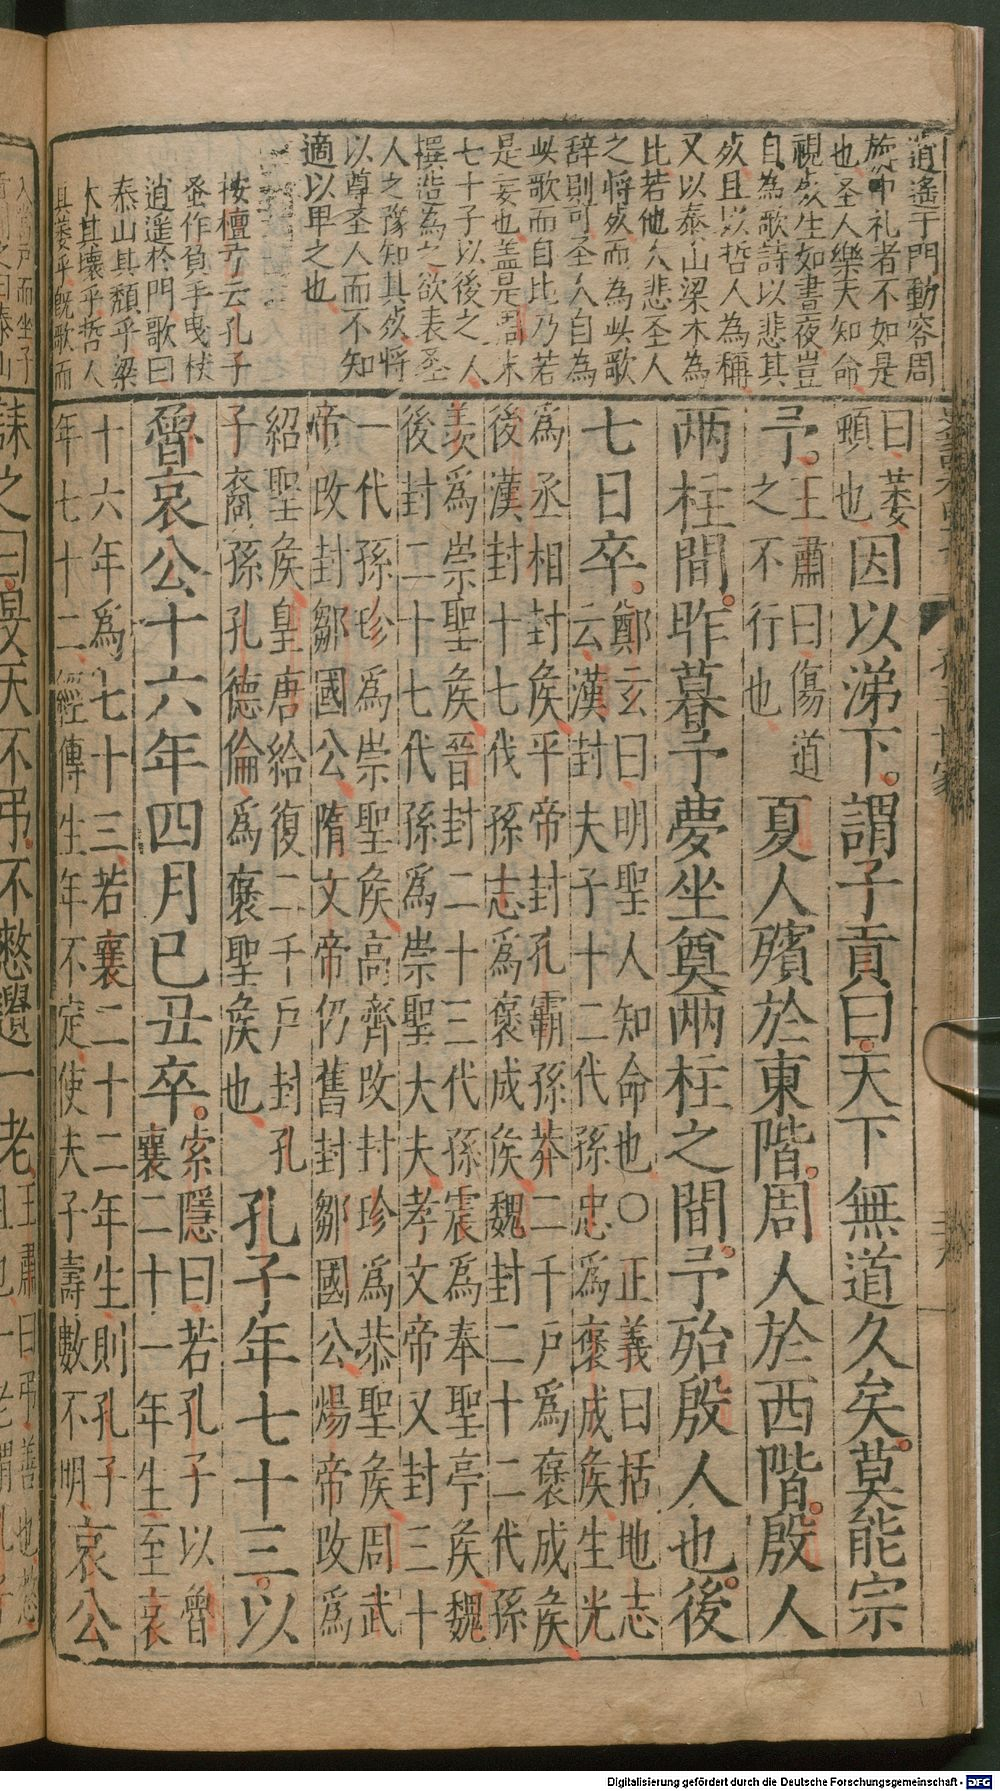 逍遙于門動容周
旋中礼者不如是
也圣人樂天知命
視死生如晝夜豈
自為歌詩以悲其
死且以哲人為稱
又以泰山梁木為
比若他人悲圣人
之將死而為此歌
辞則可圣人自為
此歌而自比乃若
是妄也盖是周末
七十子以後之人
撰造為之欲表圣
人之豫知其死将
以尊圣人而不知
適以卑之也
按檀弓云孔子
蚤作負手曳杖
逍遥於門歌曰
泰山其頹乎梁
木其壞乎哲人
其萎乎既歌而
曰萎
頓也
因以涕下。謂子貢曰天下無道久矣莫能宗
予。
王肅曰傷道
之不行也
夏人殯於東階。周人於西階。殷人
兩柱間。昨暮予夢坐奠兩柱之間。予殆殷人也。後
七日卒。
鄭玄曰明聖人知命也○正義曰括地志
云漢封夫子十二代孫忠為褒成侯生光
為丞相封侯平帝封孔霸孫莽二千戶為褒成侯
後漢封十七代孫志為褒成侯魏封二十二代孫
羡為崇聖侯晉封二十三代孫震為奉聖亭侯魏
後封二十七代孫為崇聖大夫孝文帝又封三十
一代孫珍為崇聖侯高齊改封珍為恭聖侯周武
帝改封鄒國公隋文帝仍舊封鄒國公煬帝改為
紹聖侯皇唐給復二千戶封孔
子裔孫孔德倫為褒聖侯也
孔子年七十三。以
魯哀公十六年四月已丑卒。
索隱曰若孔子以魯
襄二十一年生至哀
十六年為七十三若襄二十二年生則孔子
年七十二經傳生年不定使夫子壽數不明
哀公
孔子世家
誄之曰旻天不弔不憖遺一老
王肅曰弔善也憖
且也一老謂孔子
入當戶而坐子
貢聞之曰泰山
Digitalisierung gefördert durch die Deutsche Forschungsgemeinschaft - DFG